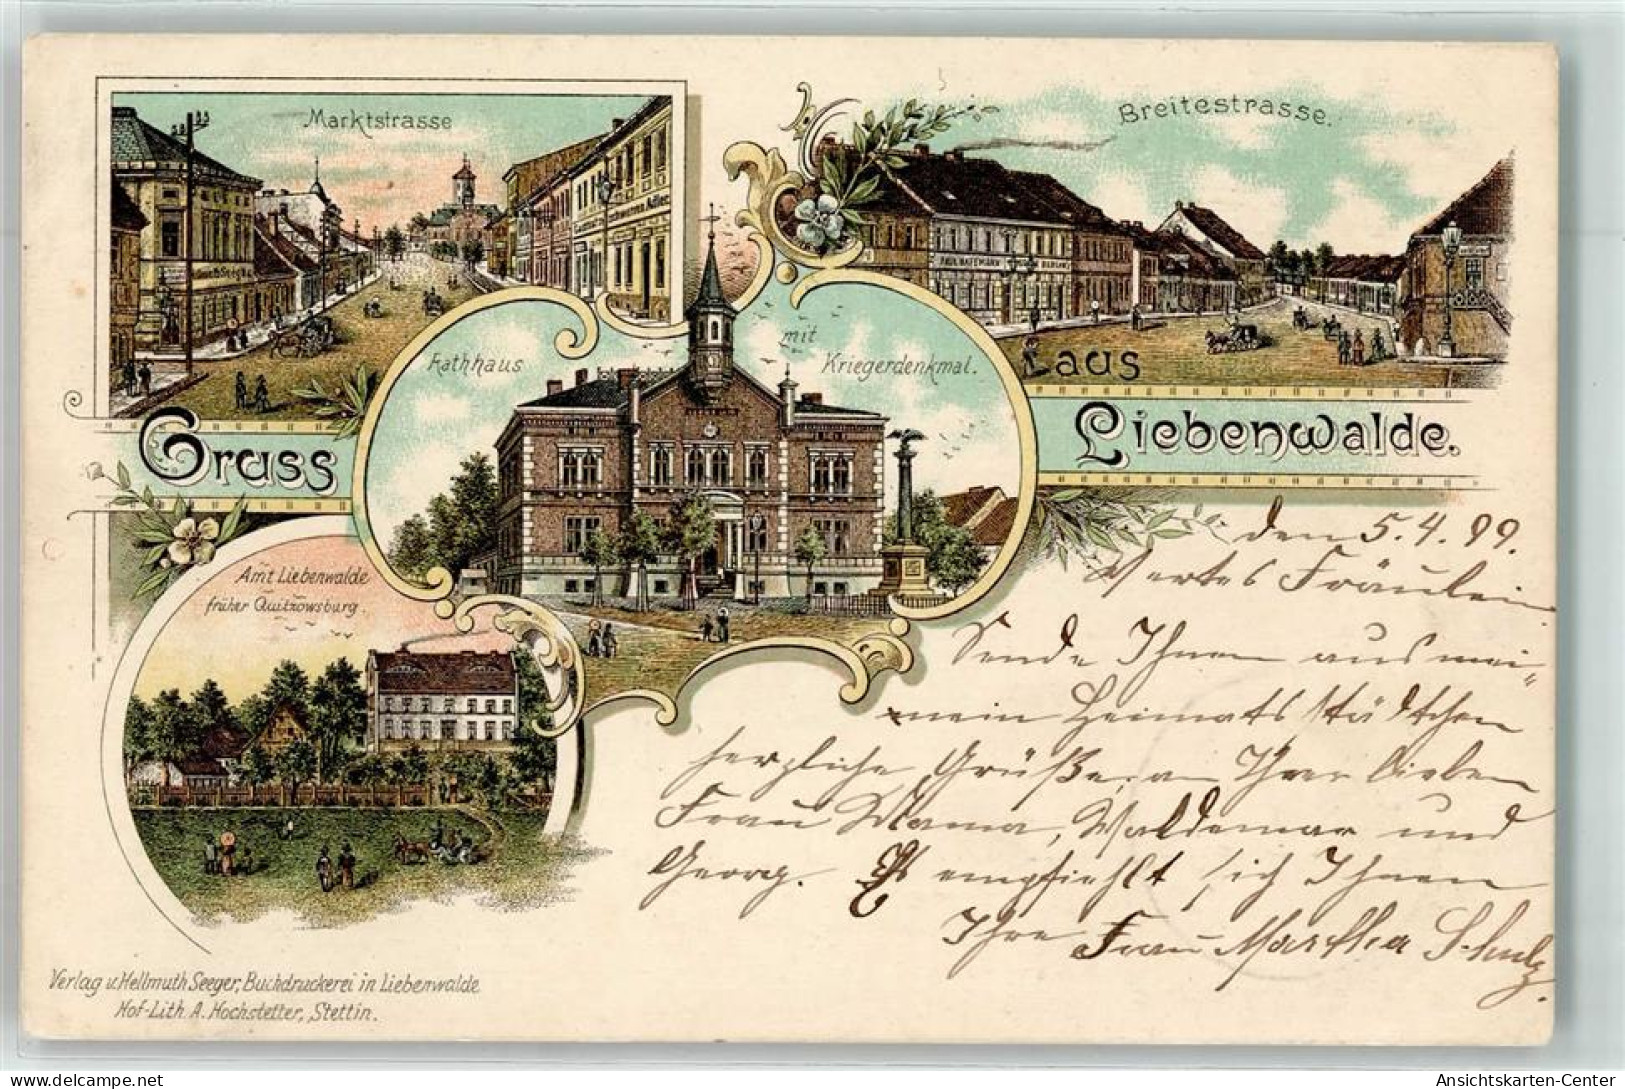 Marktstrasse
Breitestrasse.
Rathhaus
mit
Kriegerdenkmal.
Gruss
aus
Liebenwalde.
Amt Liebenwalde
früher Quitzowsburg.
den 5.4.99.
Wertes Fräulein
Sende Ihnen aus mei-
nem Heimatsstädtchen
herzliche Grüße, an Ihre lieben
Frau Mama, Waldemar und
Georg. Es empfiehlt sich Ihnen
Ihre Frau Martha Schulz.
Verlag v. Hellmuth Seeger, Buchdruckerei in Liebenwalde
Hof-Lith. A. Hochstetter, Stettin.
Ansichtskarten-Center